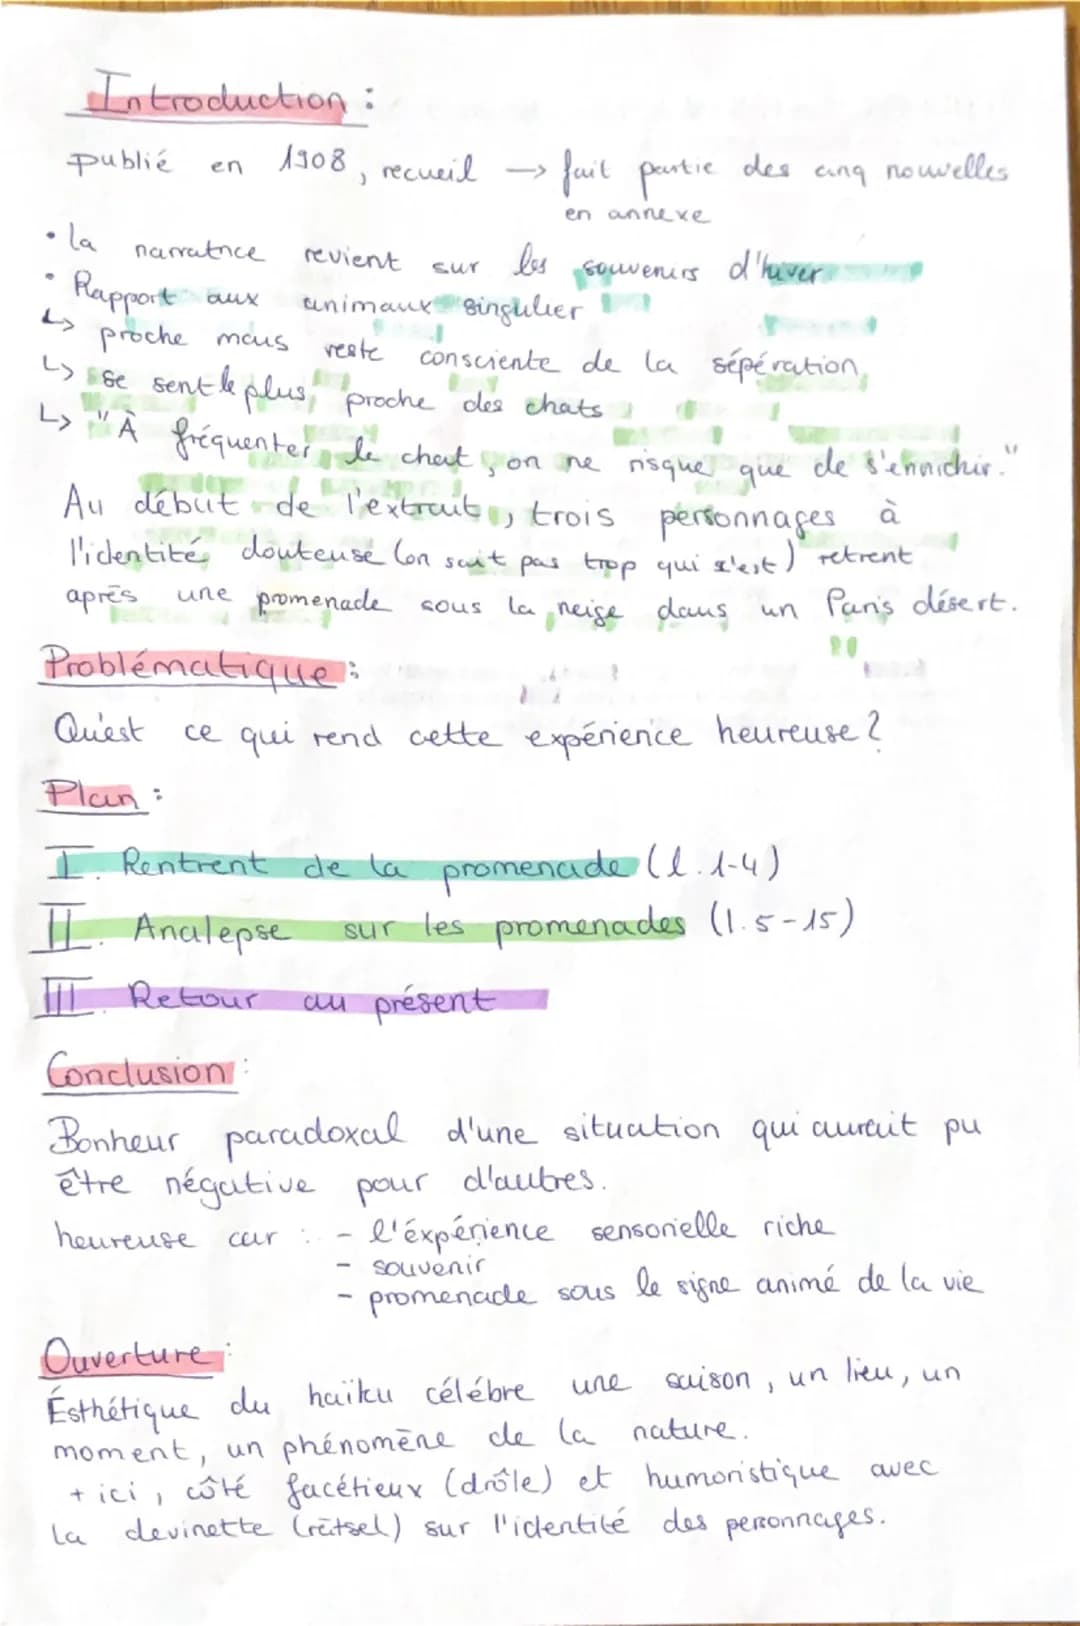 Introduction :
publié en 1908, recueil → fait partie des cinq nouvelles
en annexe
• la narratrice revient sur les souvenirs d'hiver
• Rapport aux animaux singulier
↳ proche mais reste consciente de la sépération
↳ se sent le plus proche des chats
↳ "À fréquenter le chat, on ne risque que de s'ennichir."
Au début de l'extrait, trois personnages à
l'identité douteuse (on sait pas trop qui c'est) retrent
après une promenade sous la neige dans un Paris désert.
Problématique :
Qu'est ce qui rend cette expérience heureuse ?
Plan :
I. Rentrent de la promenade (l. 1-4)
II. Analepse sur les promenades (l. 5-15)
III. Retour au présent
Conclusion :
Bonheur paradoxal d'une situation qui aurait pu
être négative pour d'autres.
heureuse car : - l'éxpérience sensorielle riche
- souvenir
- promenade sous le signe animé de la vie
Ouverture :
Ésthétique du haïku célébre une saison, un lieu, un
moment, un phénomène de la nature.
+ ici, côté facétieux (drôle) et humoristique avec
la devinette (rätsel) sur l'identité des personnages.